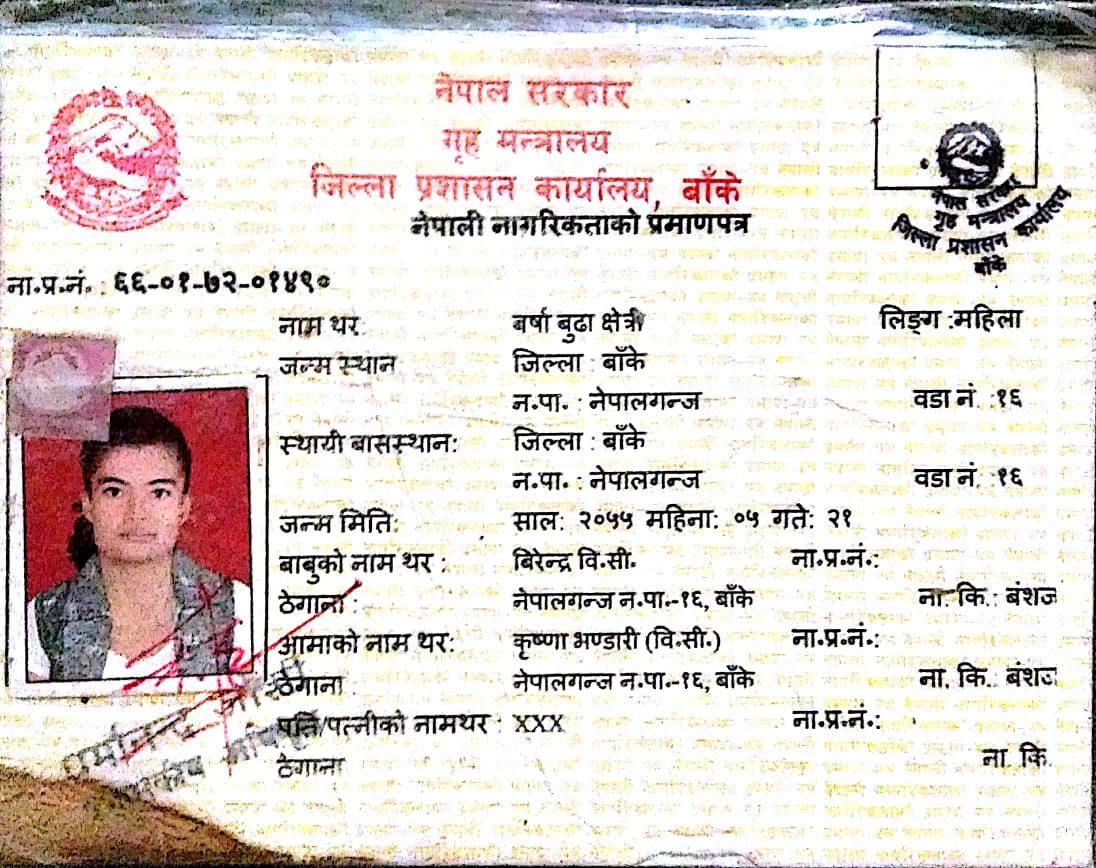 नेपाल सरकार
गृह मन्त्रालय
जिल्ला प्रशासन कार्यालय, बाँके
नेपाली नागरिकताको प्रमाणपत्र
नेपाल सरकार
गृह मन्त्रालय
जिल्ला प्रशासन कार्यालय
बाँके
ना.प्र.नं. : ६६-०१-७२-०१४९०
नाम थर: बर्षा बुढा क्षेत्री लिङ्ग :महिला
जन्म स्थान जिल्ला : बाँके
न.पा. : नेपालगन्ज वडा नं. :१६
स्थायी बासस्थान: जिल्ला : बाँके
न.पा. : नेपालगन्ज वडा नं. :१६
जन्म मिति: साल: २०५५ महिना: ०५ गते: २१
बाबुको नाम थर : बिरेन्द्र वि.सी. ना.प्र.नं.:
ठेगाना : नेपालगन्ज न.पा.-१६, बाँके ना. कि.: बंशज
आमाको नाम थर: कृष्णा भण्डारी (वि.सी.) ना.प्र.नं.:
ठेगाना नेपालगन्ज न.पा.-१६, बाँके ना. कि.: बंशज
पति/पत्नीको नामथर : XXX ना.प्र.नं.:
ठेगाना ना. कि.